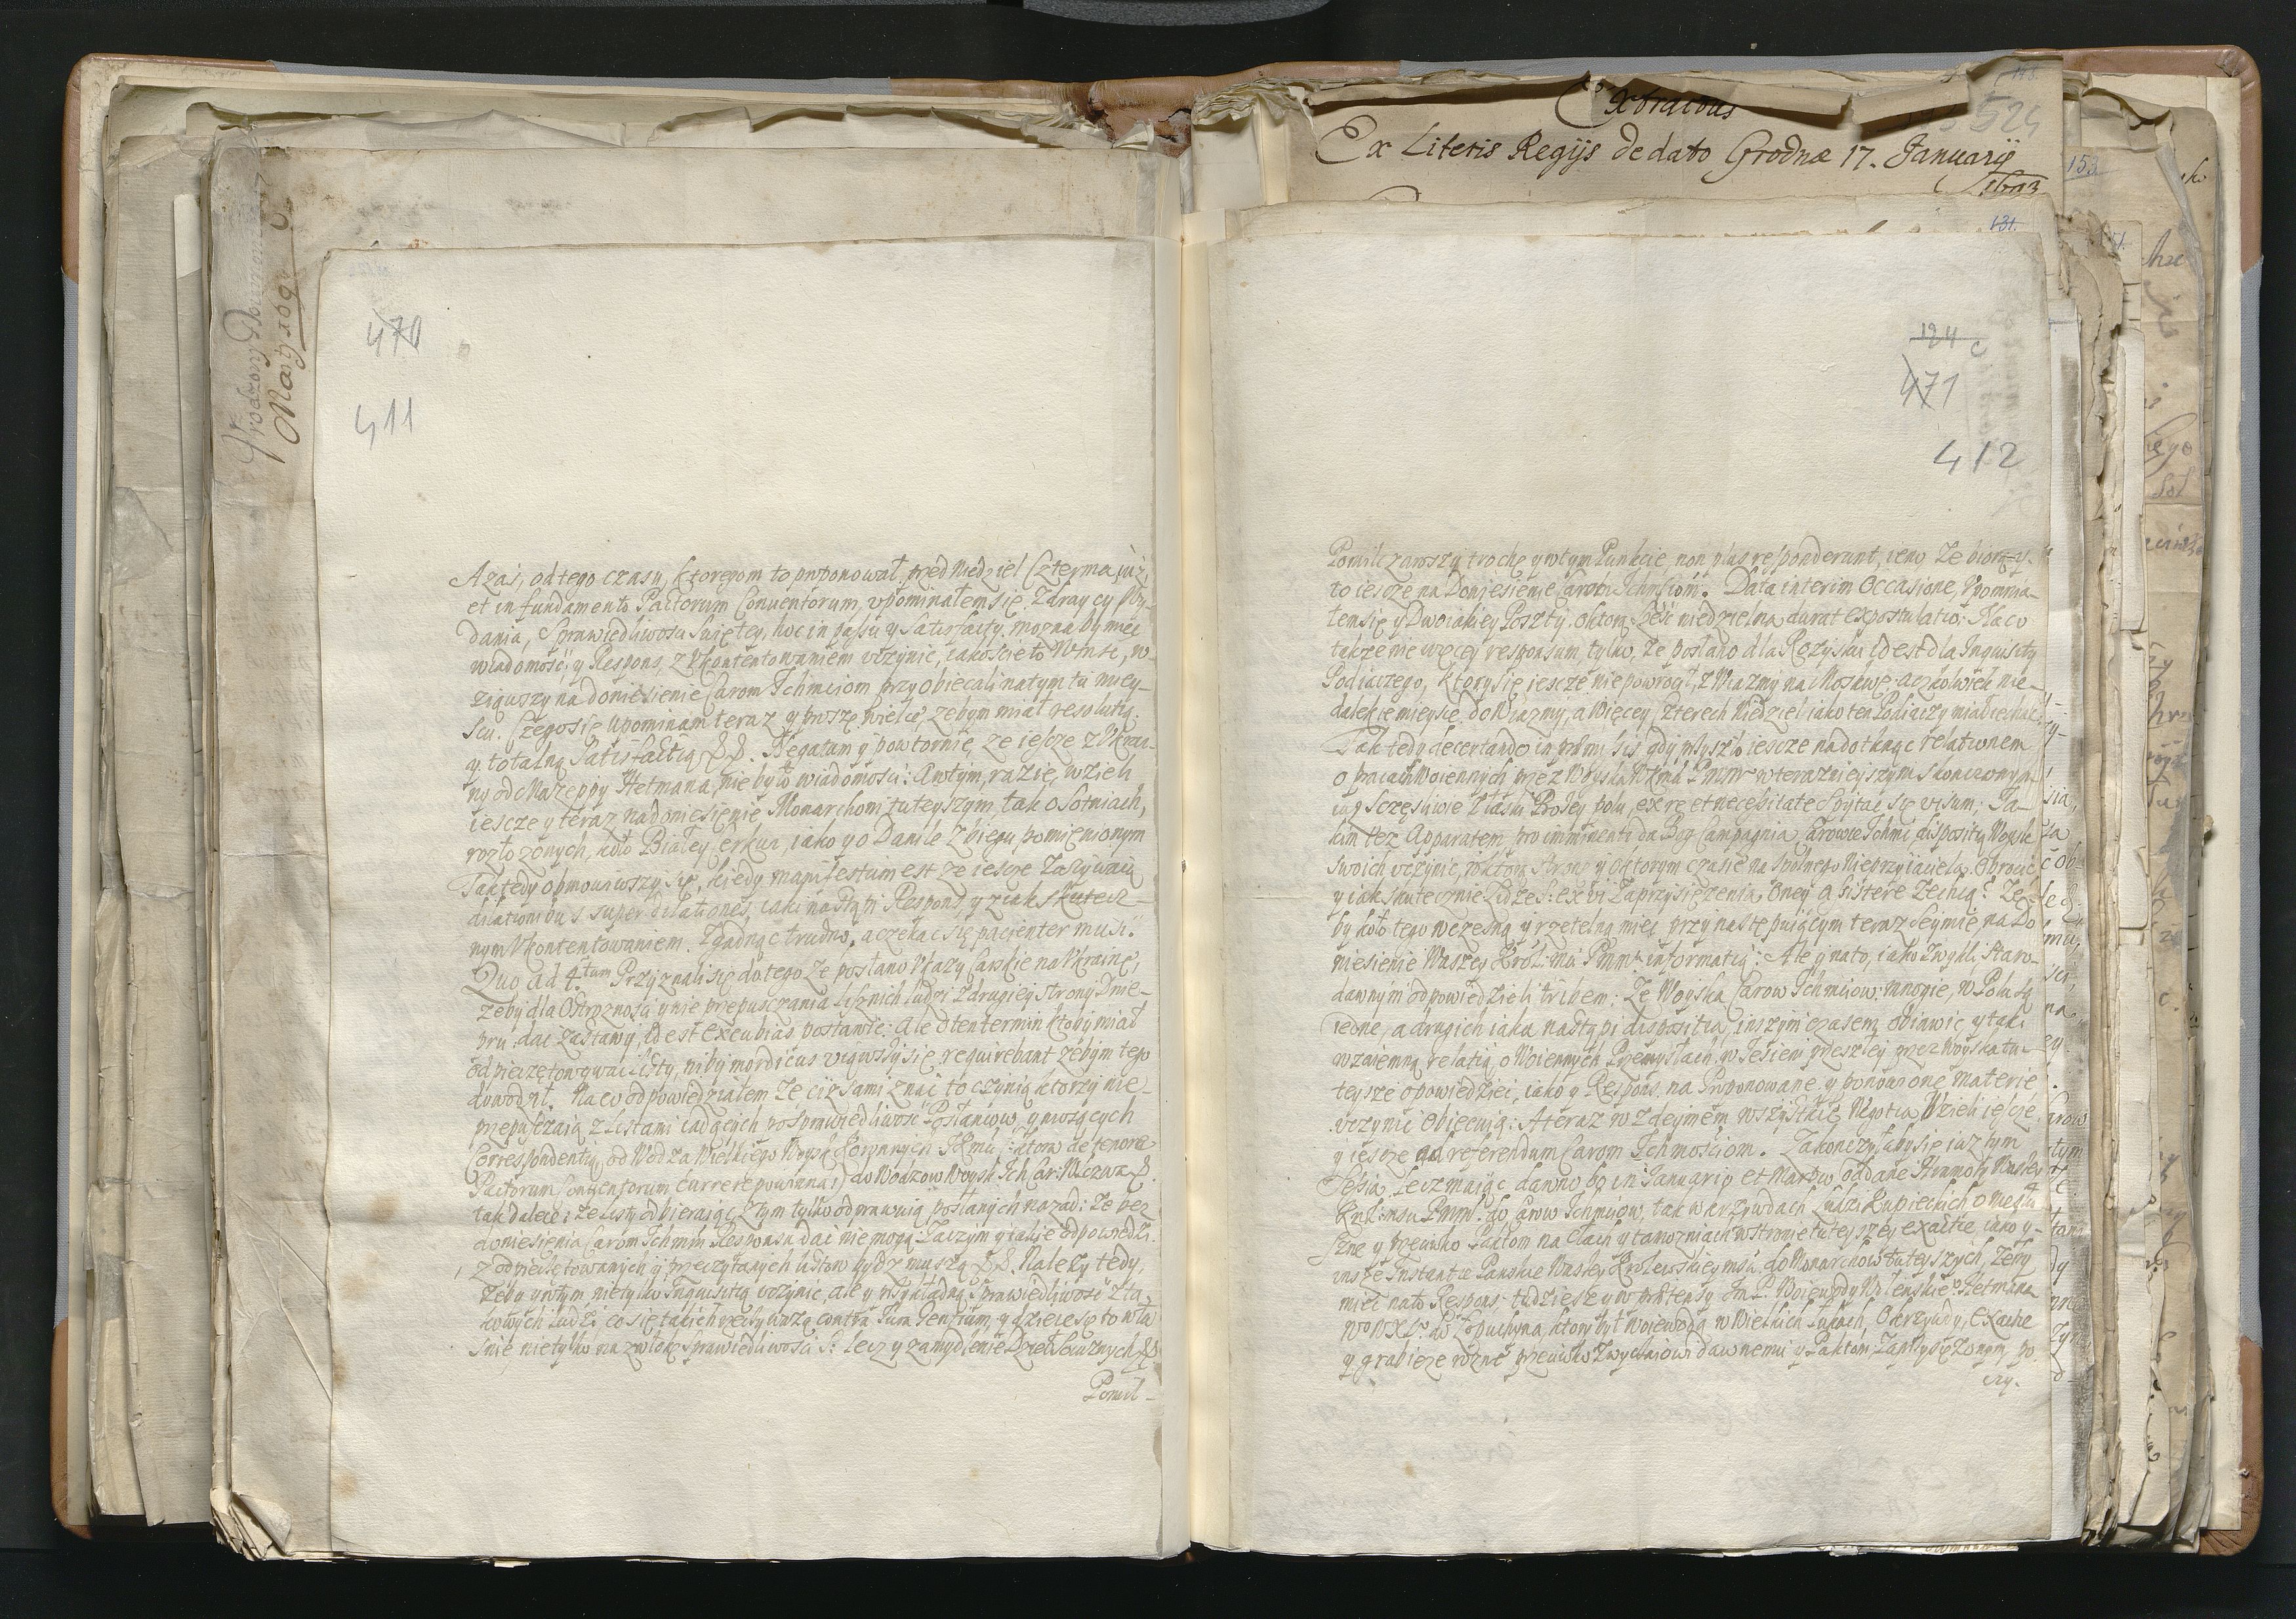 470
411
Azaś, od tego czasu, ktoregom to proponował, przed Niedziel Czterma iuż,
et in fundamento Pactorum Conventorum, upominałem się, Zdraycy Wy-
dania, Sprawiedliwości Swiętey, hoc in passu y Satisfactij. mozna by mieć
wiadomość, y Respons, z Vkontentowaniem vczynić, iakoscie to Wmść, w-
ziąwszy na doniesienie Carom Ichmciom przyobiecali na tym tu miey-
scu. Czego się upominam teraz y proszę wielce, żebym miał resolutią.
y totalną Satisfactią &&. Negatum y powtornie, ze iescze z Vkrai-
ny od Mazeppy Hetmana, nie było wiadomości: A w tym, razie, wzieli
iescze y teraz na doniesienie Monarchom tuteyszym, tak o Sotniach,
rozłożonych, koło Białey cerkwi, iako y o Danile Zbiegu, pomienionym
Tak tedy obmowiwszy się, kiedy manifestum est ze iescze Zazywaią
dilationibus super dilationes, iaki nastąpi Respons, y z iak skutecz-
nym Vkontentowaniem. Zgadnąc trudno, a czekac się pacienter musi.
Quo ad 4.tum Przyznali się do tego Ze posłano Vkazy Carskie na Vkrainę,
zeby dla Ostroznosci y nie przepusczania Lisznich ludzi z drugiey strony Dnie-
pru, dac Zastawy, id est Excubias postawic: Ale o ten termin ktoby miał
odpieczętowywac Listy, niby mordicus uiąwszy się requirebant żebym tego
dowodził. Na co odpowiedziałem Ze ciż sami znać to czynią ktorzy nie-
przepusczaią z Listami iadących po sprawiedliwość Posłańcow, y noszących
Correspondentią od Wodza Wielkiego Woysk Koronnych Ikmci: ktora de tenore
Pactorum Conventorum currere powinna:) do Wodzow Woysk Ich Car: Wiczow &.
tak dalece: ze Listy odbieraiąc z tym tylko odprawuią posłanych nazad: Ze bez
doniesienia Carom Ichmm Responsu dać nie mogą: Zaczym y takie odpowiedzi.
z odpieczętowanych y przeczytanych Listow bydz muszą &&. Należy tedy,
Zeby y w tym nie tylko Inquisitią vczynic, ale y przykładną Sprawiedliwość z ta-
kowych Ludzi co się takich rzeczy ważą contra Jura Gentium, y dzieie się to wła-
snie nietylko na zwłokę Sprawiedliwości S: lecz y zamydlenie Dzieł Słusznych &&
Pomil-
Extractus
Ex Literis Regijs de dato Grodnæ 17. Januarij
525
153.
131.
124
471
412
Pomilczawszy trochę y w tym Punkcie, non plus responderunt, ieno Ze biorą y
to iescze na Doniesienie Carom Ichmciom. Data interim Occasione, Vpomnia-
łem się y Dwoiakiey Poszty, o ktorą szesc niedzielna durat expostulatio. Na co
także nie więcey responsum, tylko, Ze posłano dla Rozysku id est dla Inquisity
Podiaczego, ktory się iescze nie powrocił, z Wiazmy na Moskwę, aczkolwiek nie-
dalekie mieysce, do Wiazmy, a więcey Czterech Niedziel iako ten Podiaczy miał iechac
Tak tedy decertando in promissis, gdy przyszło iescze nadotknąc relationem
o pracach Woiennych przez Woyska WKmci Pnmm w teraznieyszym skonczonym
iuż Szczęsliwie z łaski Bożey polu, ex re et necessitate Spytać się visum: Ja-
kim tez Apparatem, pro imminenti da Bog Campagnia, Carowie Ichmć dispositią Woysk
swoich vczynic, w ktorą stronę y o ktorym czasie na Spolnego Nieprzyiaciela Obrocic
y iak skutecznie Lidze S: ex vi Zaprzysiężenia Oney assistere Zechcą? Ze-
by koło tego wczesną y rzetelną miec przy nastepuiącym teraz Seymie na Do-
niesienie Waszey Krol: mci Pnmu informatią: Ale y na to, iako Zwykli, Staro-
dawnym odpowiedzieli tribem: Ze Woyska Carow Ichmciow mnogie, w Polu są
iedne, a drugich iaka nastąpi dispositia, inszym czasem obiawic y taką
wzaiemną relatią o Woiennych Przemysłach, w Jesieni przeszłey przez Woyska tu-
teysze opowiedzieć, iako y Respons na Proponowane y ponowione materie
vczynić Obiecuią: A teraz wzdeymem wszystkie Negotia Wzieli iescze
y iescze ad referendum Carom Ichmościom. Zakonczyłaby się iuż tym
Sessia, Lecz maiąc dawno bo in Januario et Martio oddane Hramoty Waszey
Krl: msci Pnm. do Carow Ichmciow, tak w krzywdach Ludzi Kupieckich o niesłu-
szne y przeciwko Paktom na Cłach y tamozniach w stronie tuteyszey exactie, iako y-
insze Instantie Panskie Waszey Krolewskiey msci, do Monarchow tuteyszych, Zeby
miec na to Respons, tudziesz y w praetensij Jm P. Woiewody Wilenskiego Hetmana
W° WXL°. do Łopuchyna, ktory był woiewodą w Wielkich Łukach, O krzywdy, Exactie
y grabieze rożne przeciwko Zwyczaiowi dawnemu y Paktom Zaprzysiężonym, po
czy-